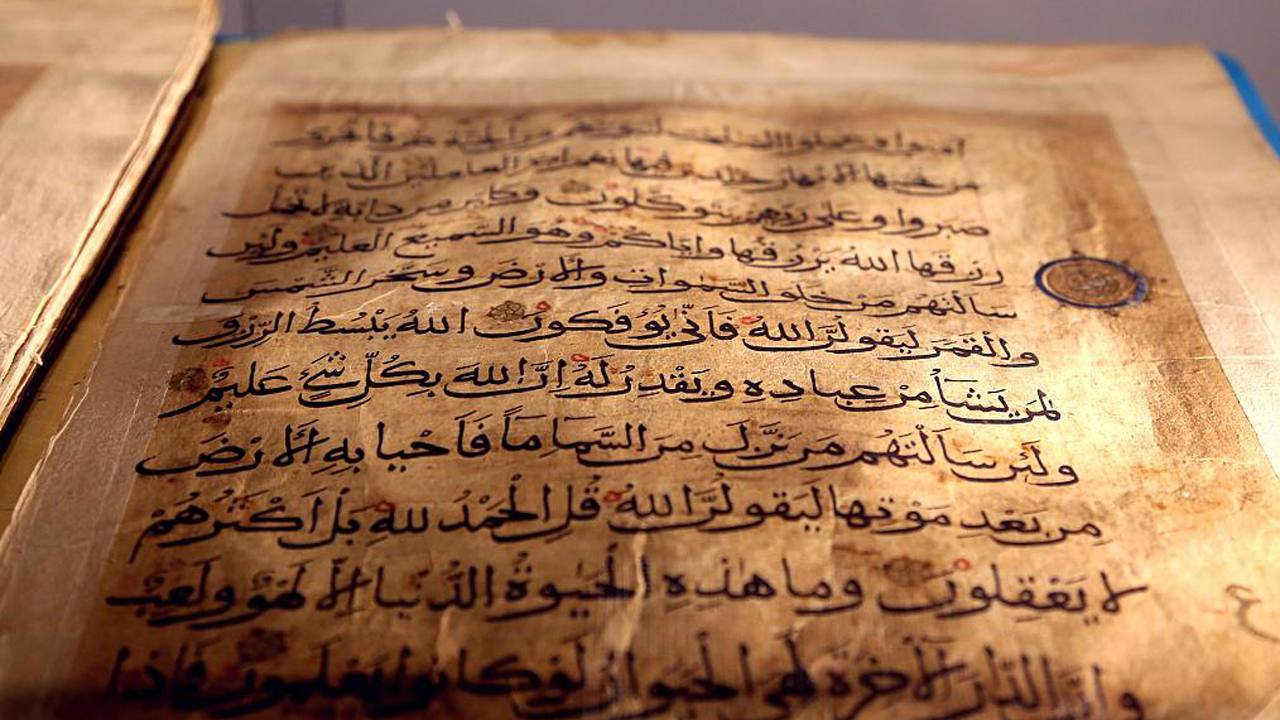 آمنوا وعملوا الصالحات لنبوئنهم من الجنة غرفا تجرى
من تحتها الأنهار خالدين فيها نعم أجر العاملين الذين
صبروا وعلى ربهم يتوكلون وكاين من دابة لا تحمل
رزقها الله يرزقها واياكم وهو السميع العليم ولئن
سالتهم من خلق السموات والارض وسخر الشمس
والقمر ليقولن الله فانى يوفكون الله يبسط الرزق
لمن يشا من عباده ويقدر له ان الله بكل شئ عليم
ولئن سالتهم من نزل من السما ما فاحيا به الارض
من بعد موتها ليقولن الله قل الحمد لله بل اكثرهم
لا يعقلون وما هذه الحيوة الدنيا الا لهو ولعب
وان الدار الآخرة لهي الحيوان لو كانوا يعلمون فاذا
ع